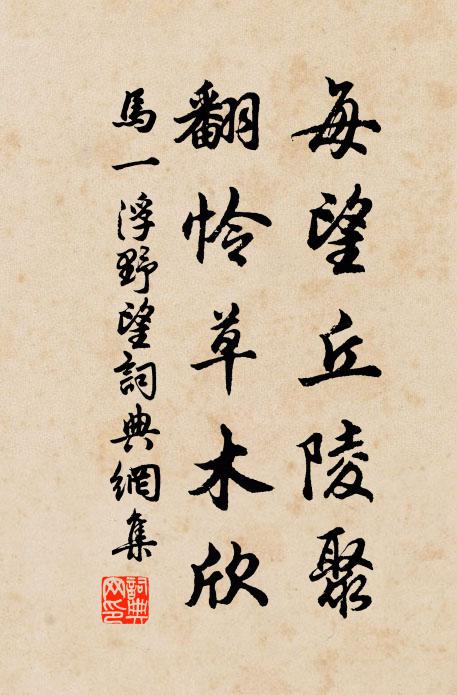 每望丘陵聚
翻怜草木欣
馬一浮野望詞典網集
詞典网印